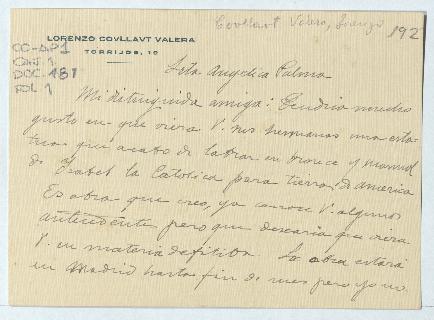 Coullaut Valera, Lorenzo
192
LORENZO COVLLAVT VALERA
TORRIJOS, 10
CO-AP1
CAJ. 1
DOC. 181
FOL 1
Srta Angelica Palma
Mi distinguida amiga: Tendria mucho
gusto en que viera V. sus hermanas una esta-
tua que acabo de labrar en bronce y marmol
de Isabel la Catolica para tierras de america
Es obra que creo, ya conoce V. algunos
antecedentes pero que desearia que viera
V. en materia defitiba. La obra estará
en Madrid hasta fin de mes pero yo no